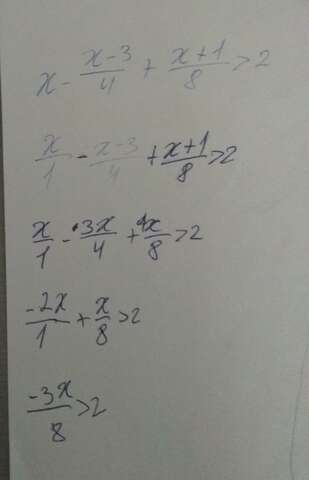 x - (x-3)/4 + (x+1)/8 > 2
x/1 - (x-3)/4 + (x+1)/8 > 2
x/1 - 3x/4 + x/8 > 2
-2x/1 + x/8 > 2
-3x/8 > 2